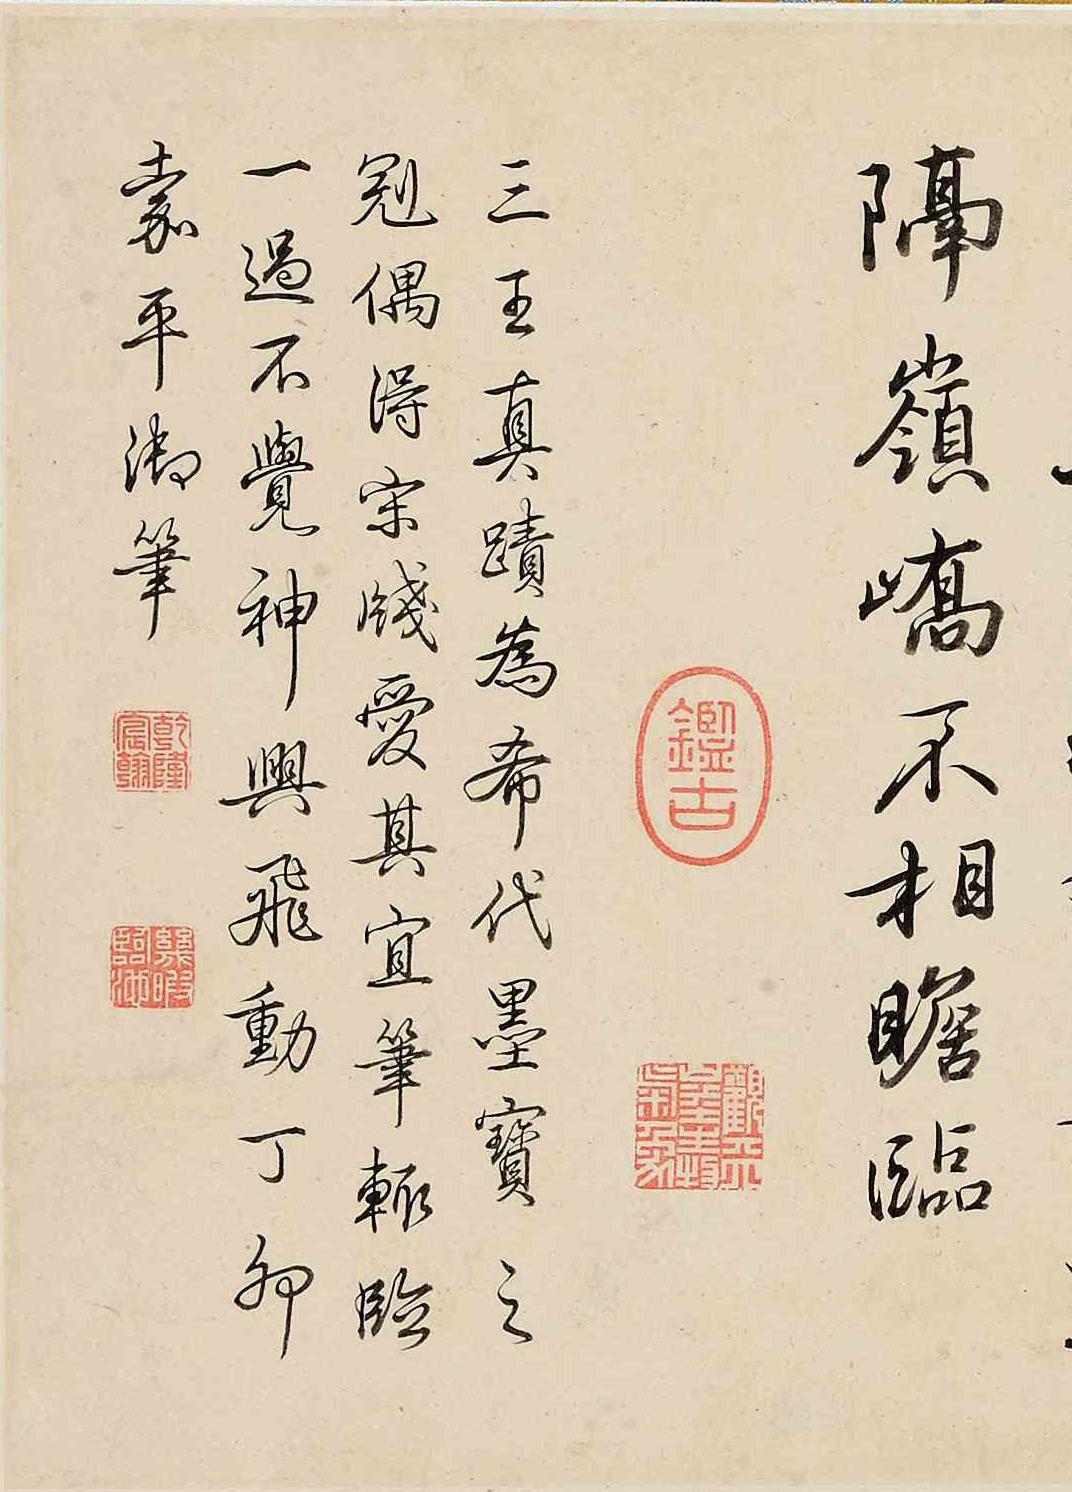 隔嶺嶠不相瞻臨
鑑古
觀天地生物氣象
三王真蹟為希代墨寶之
冠偶得宋牋愛其宜筆輒臨
一過不覺神興飛動丁卯
嘉平御筆
乾隆宸翰
幾暇臨池